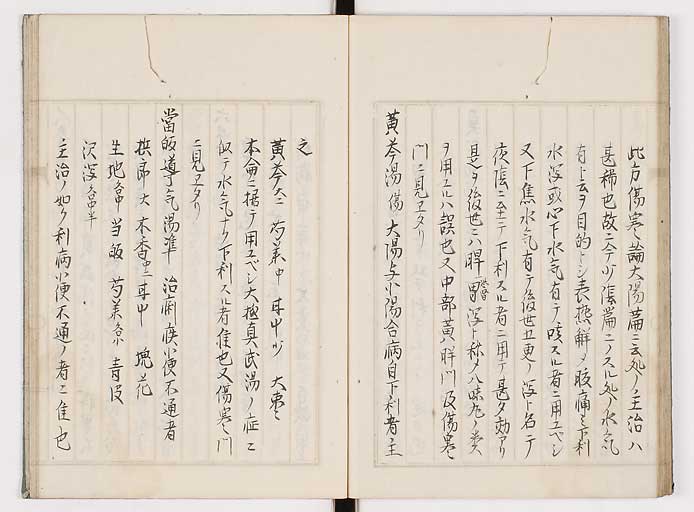 此方傷寒論大陽篇ニ云処ノ主治ハ
甚稀也故ニ今少陰篇ニノスル処ノ水気
有ト云ヲ目的トシ表熱解メ腹痛シ下利
水瀉或心下水気有テ咳スル者ニ用ユベシ
又下焦水気有テ後世五更ノ瀉ト名テ
夜陰ニ至テ下利スル者ニ用テ甚タ効アリ
是ヲ後世ニハ脾腎瀉ト称メ八味丸ノ類
ヲ用ユルハ誤也又中部黄胖門及傷寒
門ニ見エタリ
黄芩湯 傷 大陽与少陽合病自下利者主
之
黄芩大 芍薬中 甘中少 大棗
本論ニ據テ用ユベシ大抵真武湯ノ症ニ
似テ水気ナク下利スル者佳也又傷寒門
ニ見エタリ
當皈導気湯 準 治痢疾小便不通者
梹郎大 木香中 甘中 槐花
生地 当皈 芍薬 青皮
沢瀉 半
主治ノ如ク利病小便不通ノ者ニ佳也